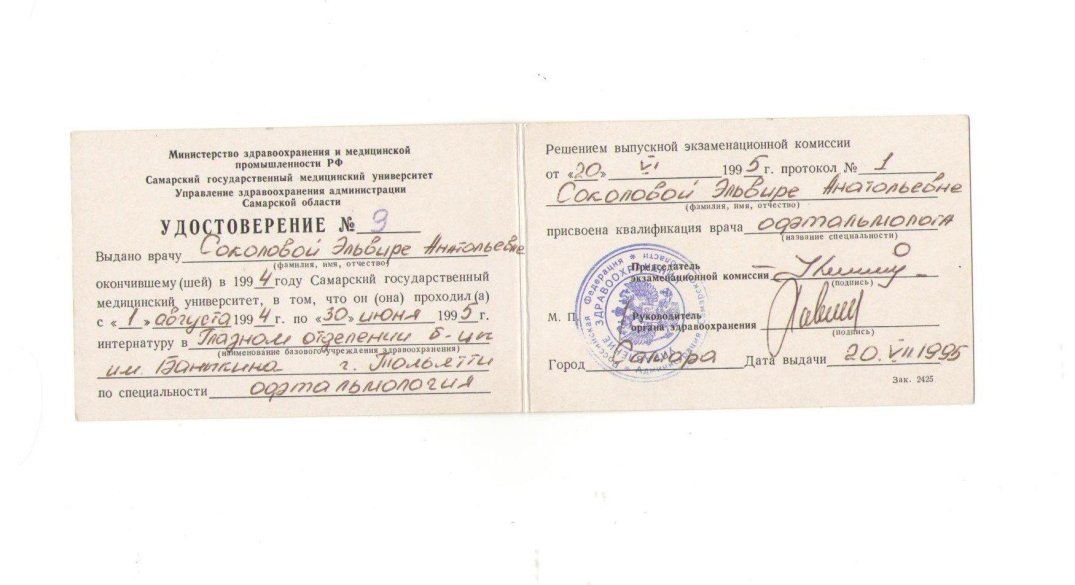 Министерство здравоохранения и медицинской
промышленности РФ
Самарский государственный медицинский университет
Управление здравоохранения администрации
Самарской области
УДОСТОВЕРЕНИЕ № 9
Выдано врачу Соколовой Эльвире Анатольевне
(фамилия, имя, отчество)
окончившему (шей) в 1994 году Самарский государственный
медицинский университет, в том, что он (она) проходил (а)
с «1» августа 1994 г. по «30» июня 1995 г.
интернатуру в Глазном отделении б-цы
(наименование базового учреждения здравоохранения)
им. Баныкина г. Тольятти
по специальности офтальмология
Решением выпускной экзаменационной комиссии
от «20» VI 1995 г. протокол № 1
Соколовой Эльвире Анатольевне
(фамилия, имя, отчество)
присвоена квалификация врача офтальмолога
(название специальности)
Председатель
экзаменационной комиссии
(подпись)
М. П.
Руководитель
органа здравоохранения
(подпись)
Город Самара Дата выдачи 20. VII 1995
Зак. 2425